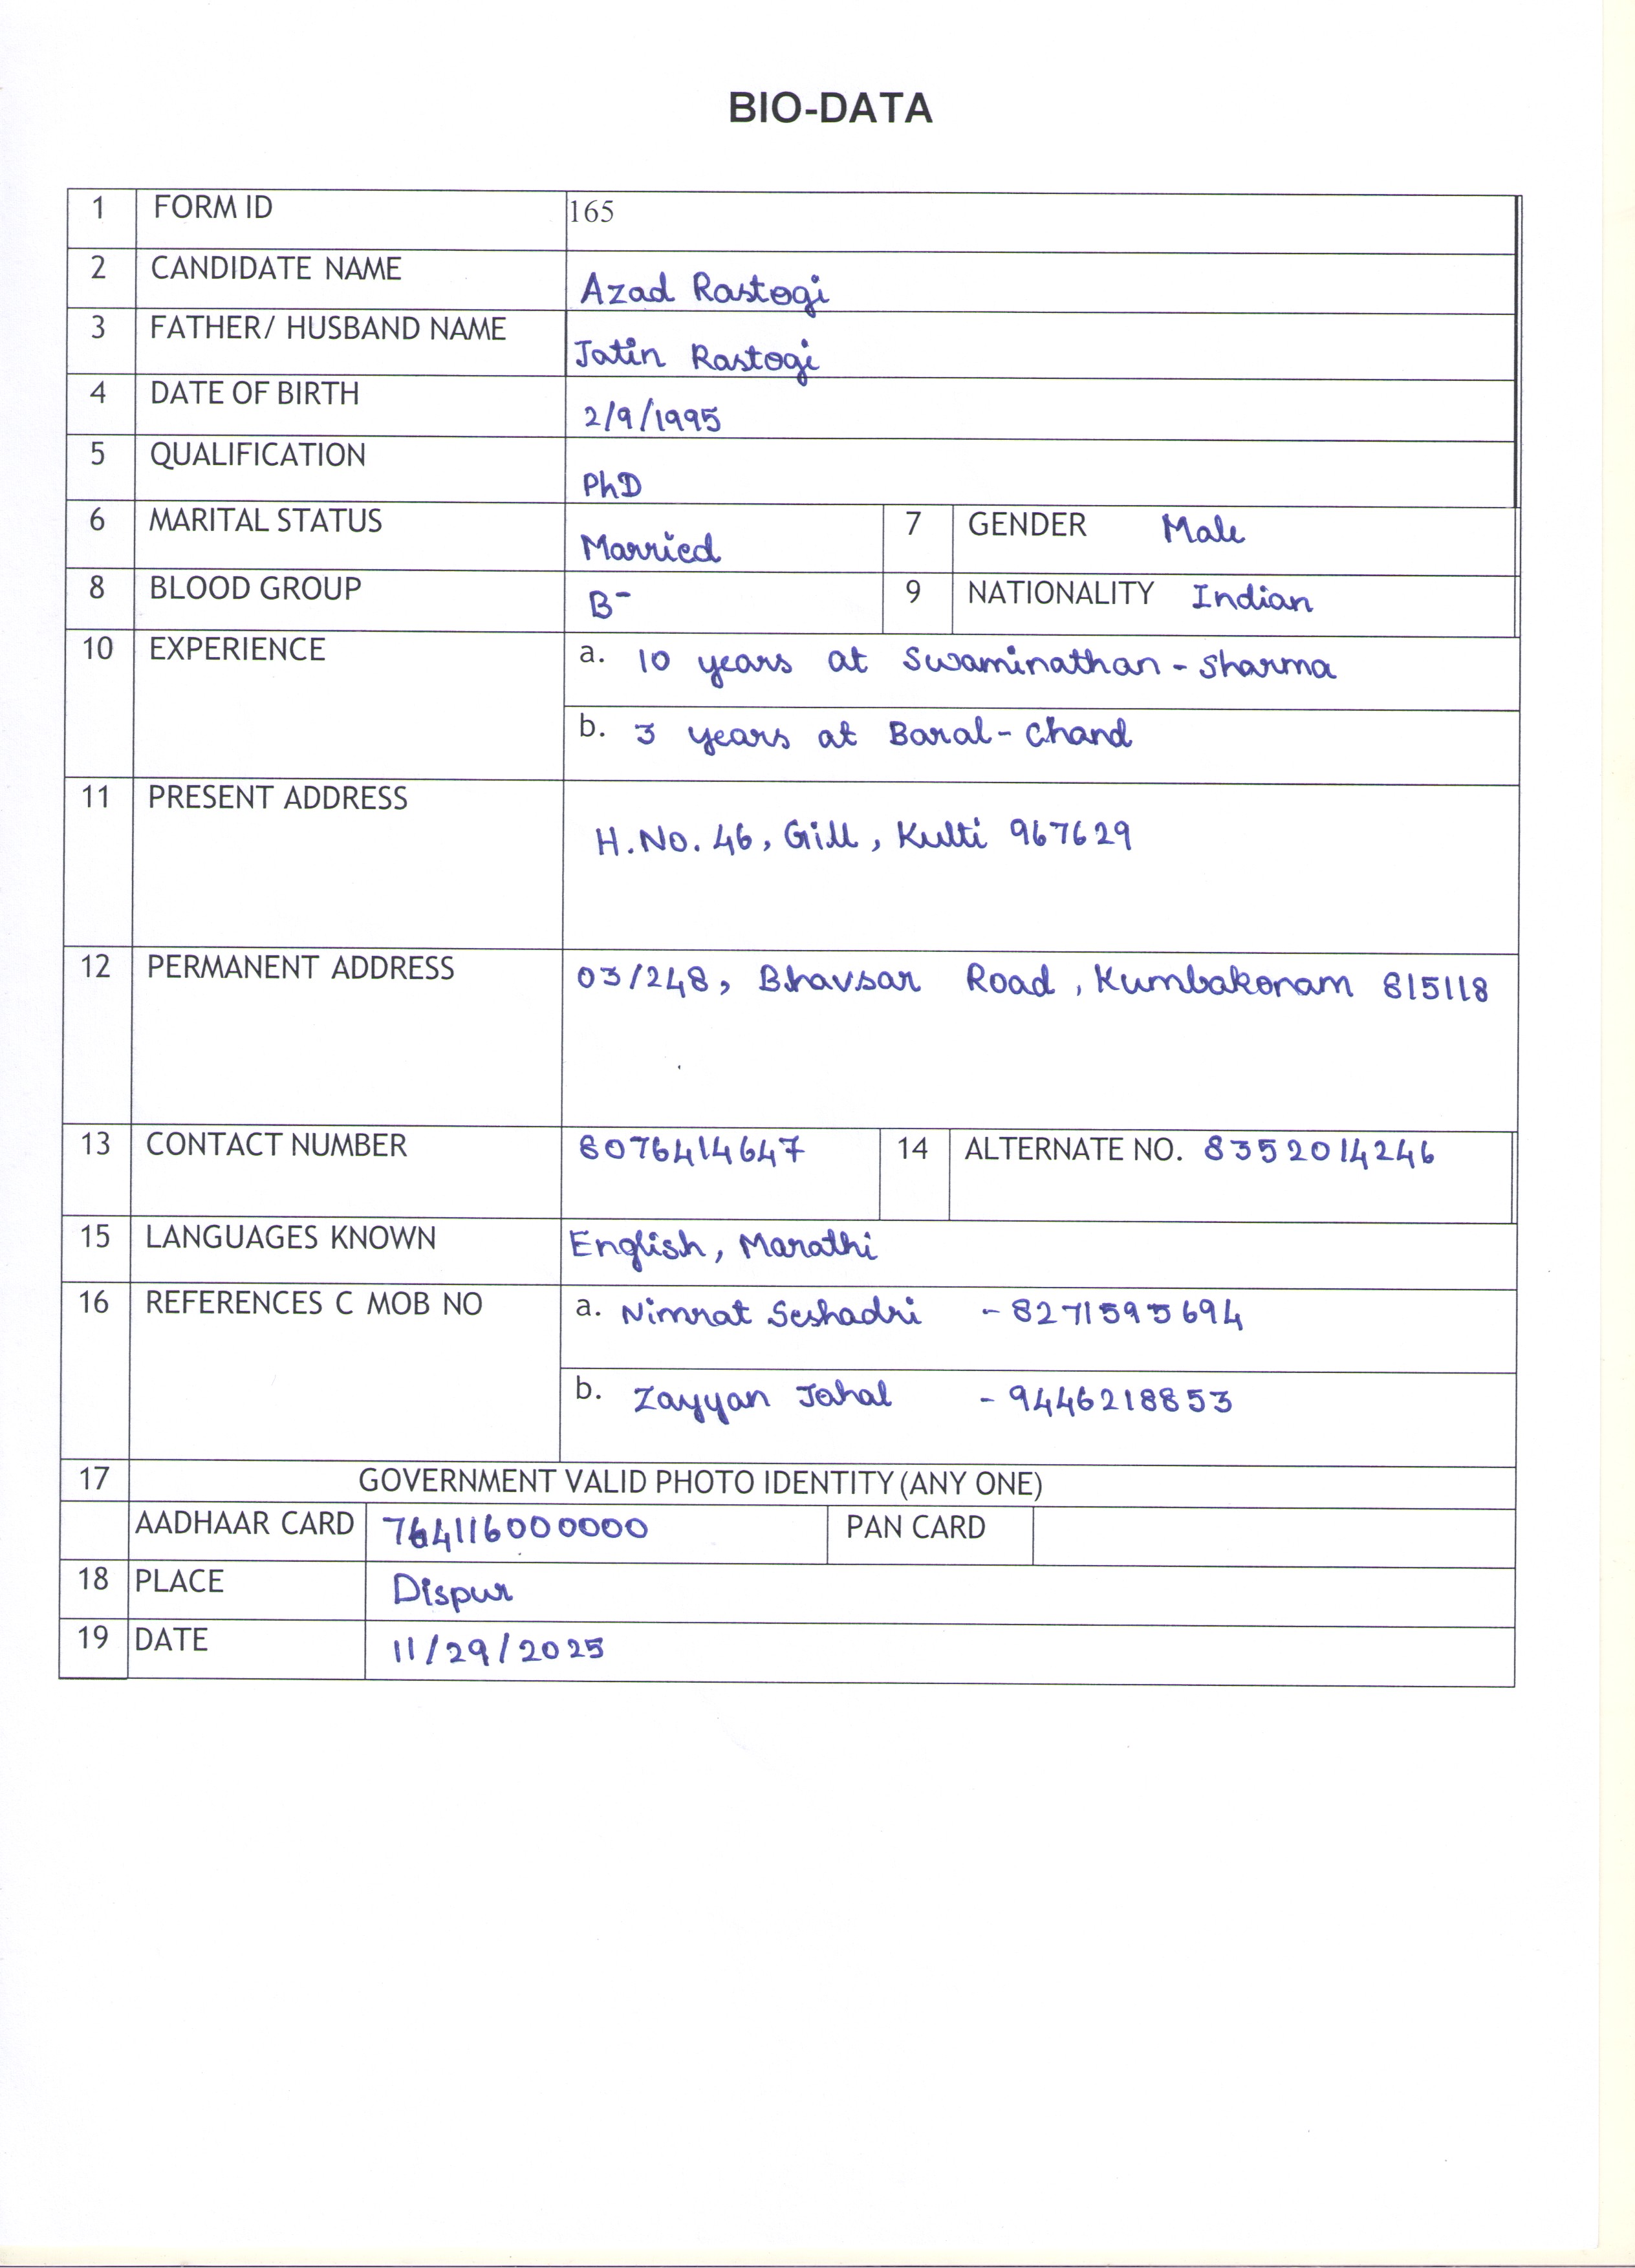 BIO-DATA
1 FORM ID 165
2 CANDIDATE NAME Azad Rastogi
3 FATHER/ HUSBAND NAME Jatin Rastogi
4 DATE OF BIRTH 2/9/1995
5 QUALIFICATION PhD
6 MARITAL STATUS Married 7 GENDER Male
8 BLOOD GROUP B- 9 NATIONALITY Indian
10 EXPERIENCE a. 10 years at Swaminathan - Sharma
b. 3 years at Baral - Chand
11 PRESENT ADDRESS H.No. 46, Gill, Kulti 967629
12 PERMANENT ADDRESS 03/248, Bhavsar Road, Kumbakonam 815118
13 CONTACT NUMBER 8076414647 14 ALTERNATE NO. 8352014246
15 LANGUAGES KNOWN English, Marathi
16 REFERENCES C MOB NO a. Nimrat Seshadri - 8271595694
b. Zayyan Johal - 9446218853
17 GOVERNMENT VALID PHOTO IDENTITY (ANY ONE)
AADHAAR CARD 764116000000 PAN CARD
18 PLACE Dispur
19 DATE 11/29/2025